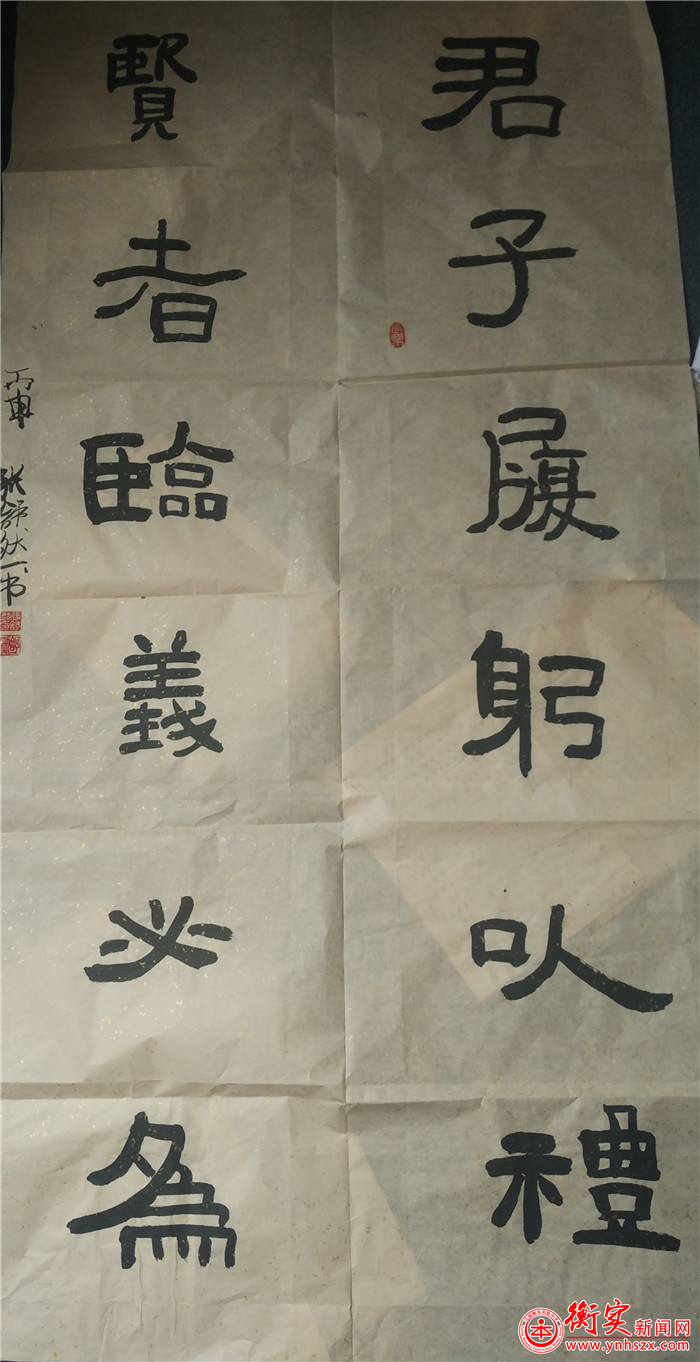 君子履躬以禮
賢者臨義必為
丙申 張舒然書
衡实新闻网
www.ynhszx.com